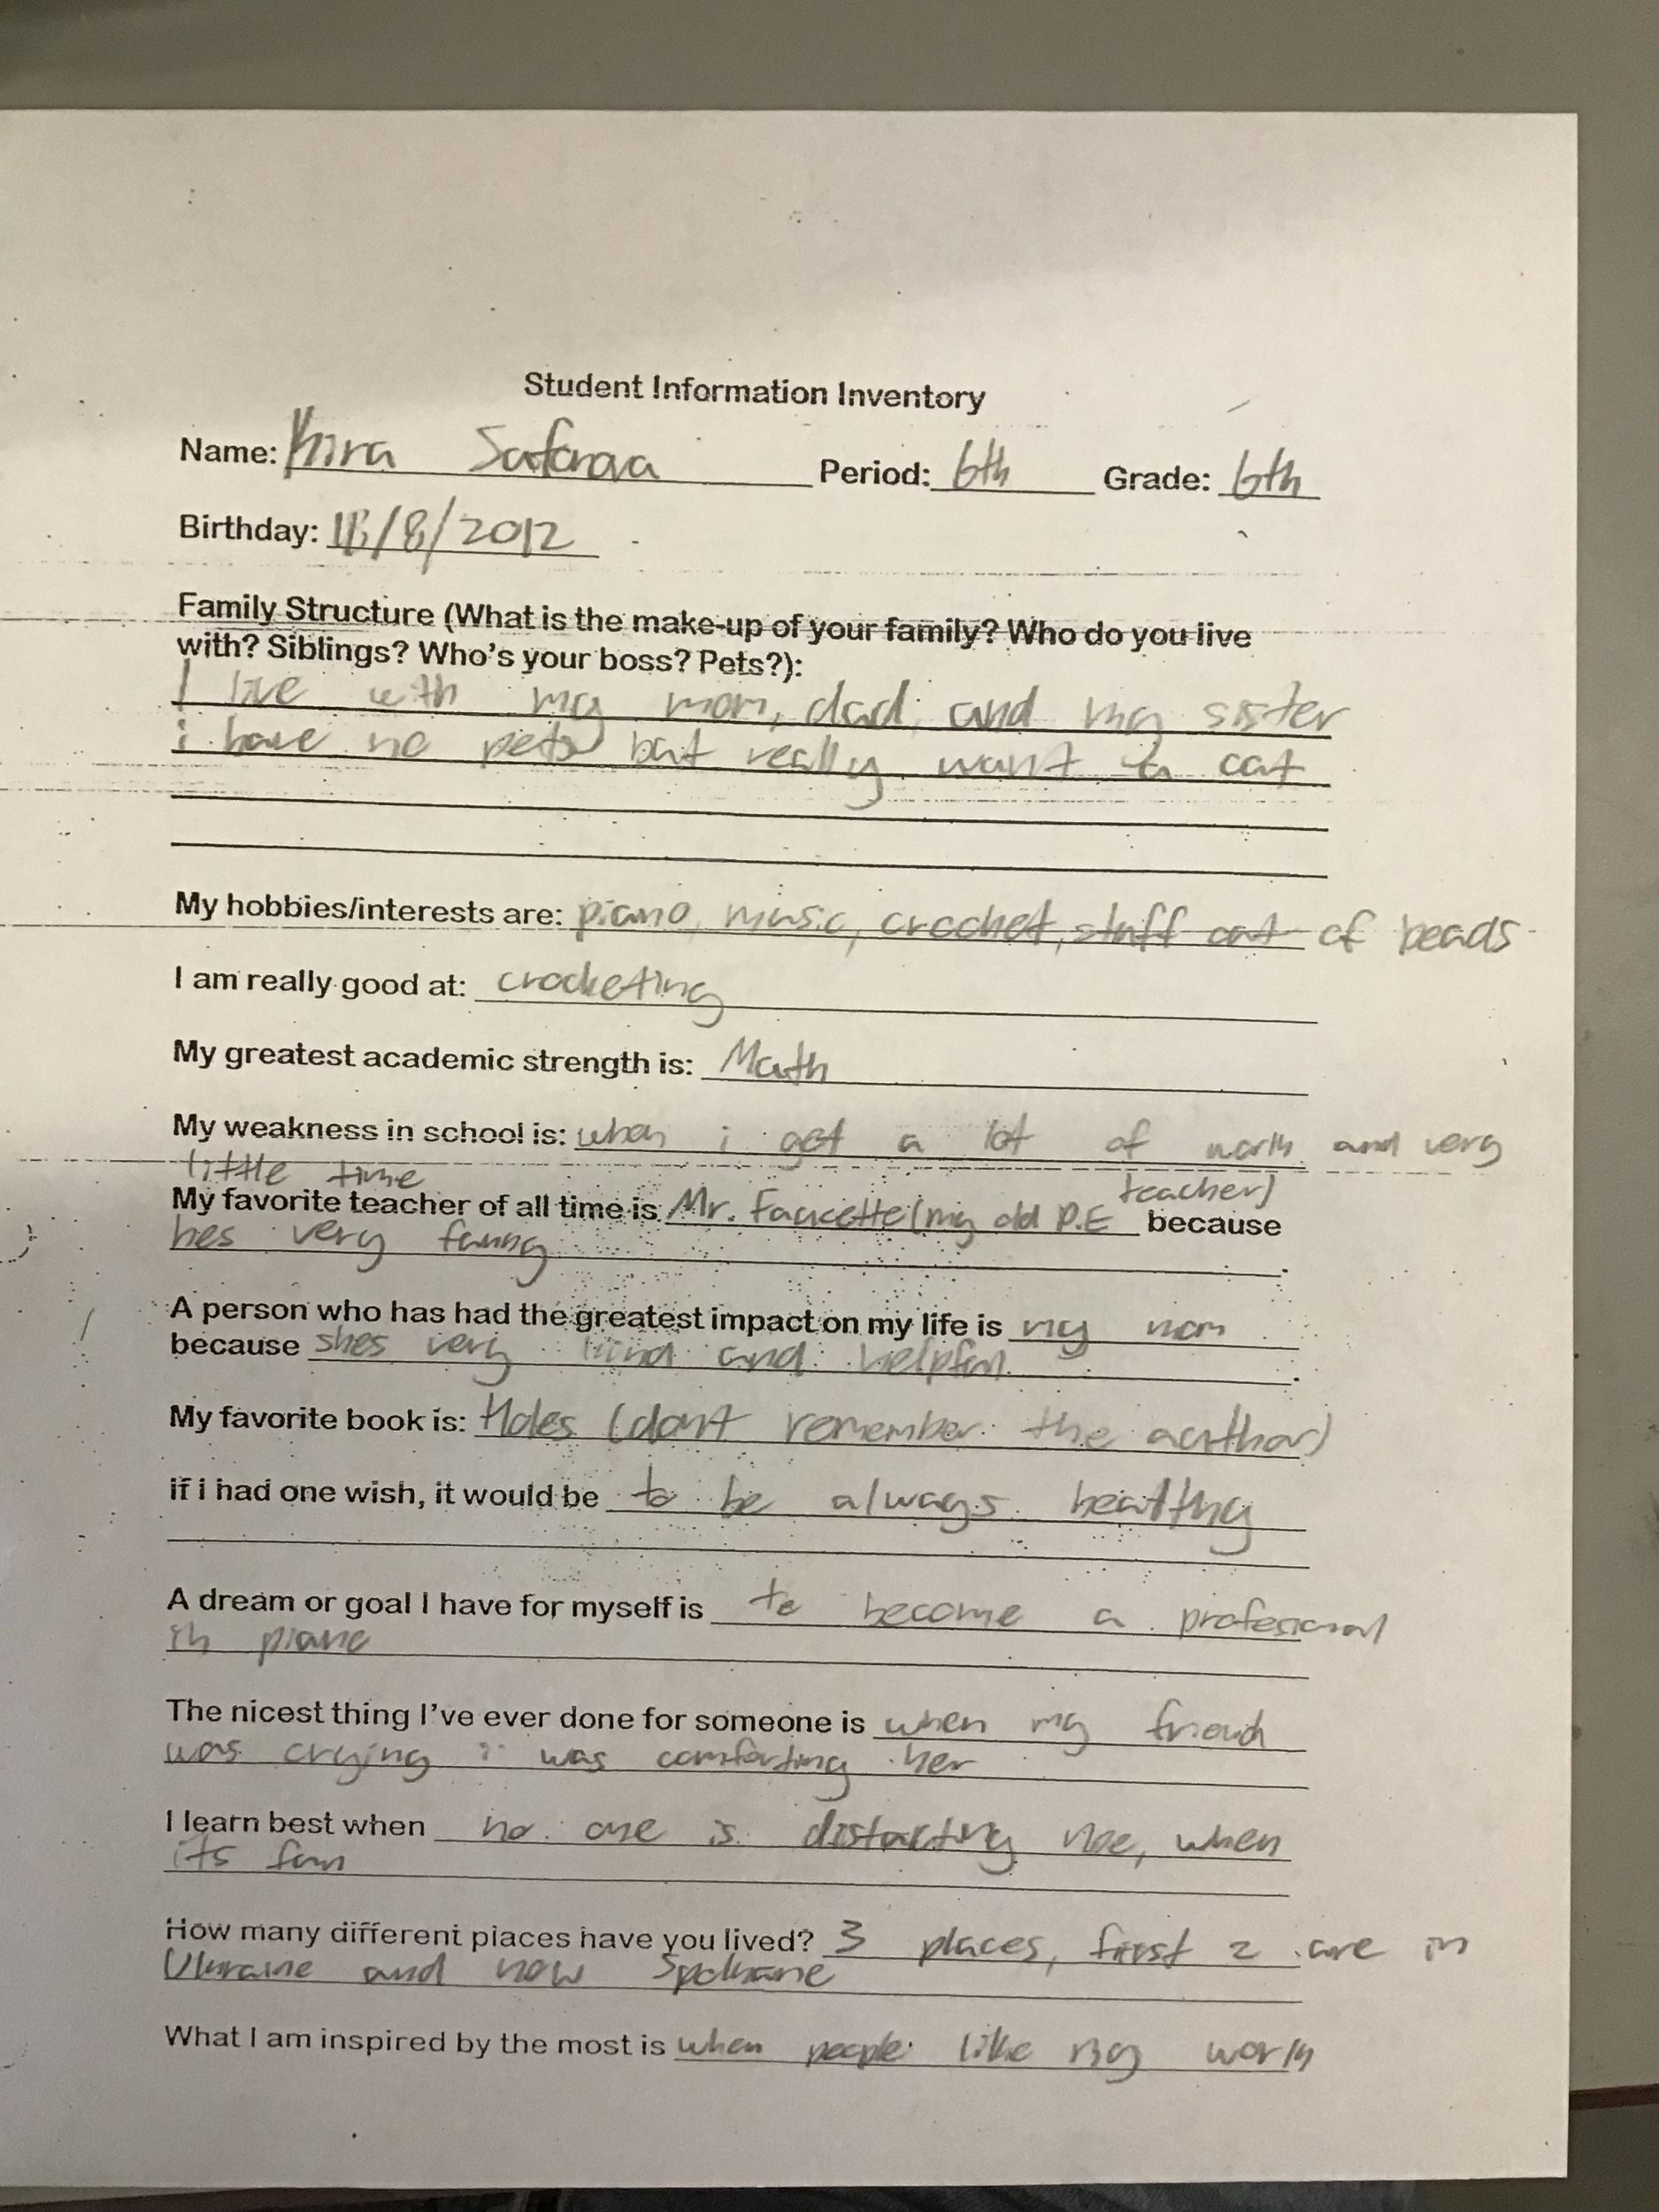 Student Information Inventory
Name: Kira Safonova Period: 6th Grade: 6th
Birthday: /8/2012
Family Structure (What is the make-up of your family? Who do you live
with? Siblings? Who's your boss? Pets?):
I live with my mom, dad, and my sister
i have no pets but really want a cat
My hobbies/interests are: piano, music, crochet, stuff out of beads
I am really good at: crocketing
My greatest academic strength is: Math
My weakness in school is: when i get a lot of work and very
little time
My favorite teacher of all time is Mr. Faucette (my old P.E teacher) because
hes very funny.
A person who has had the greatest impact on my life is my mom
because shes very kind and helpful.
My favorite book is: Holes (dont remember the author)
if i had one wish, it would be to be always healthy
A dream or goal I have for myself is to become a profesional
in piano
The nicest thing I've ever done for someone is when my friend
was crying i was comforting her
I learn best when no one is distacting me, when
its fun
How many different places have you lived? 3 places, first 2 are in
Ukraine and now Spokane
What I am inspired by the most is when people like my work